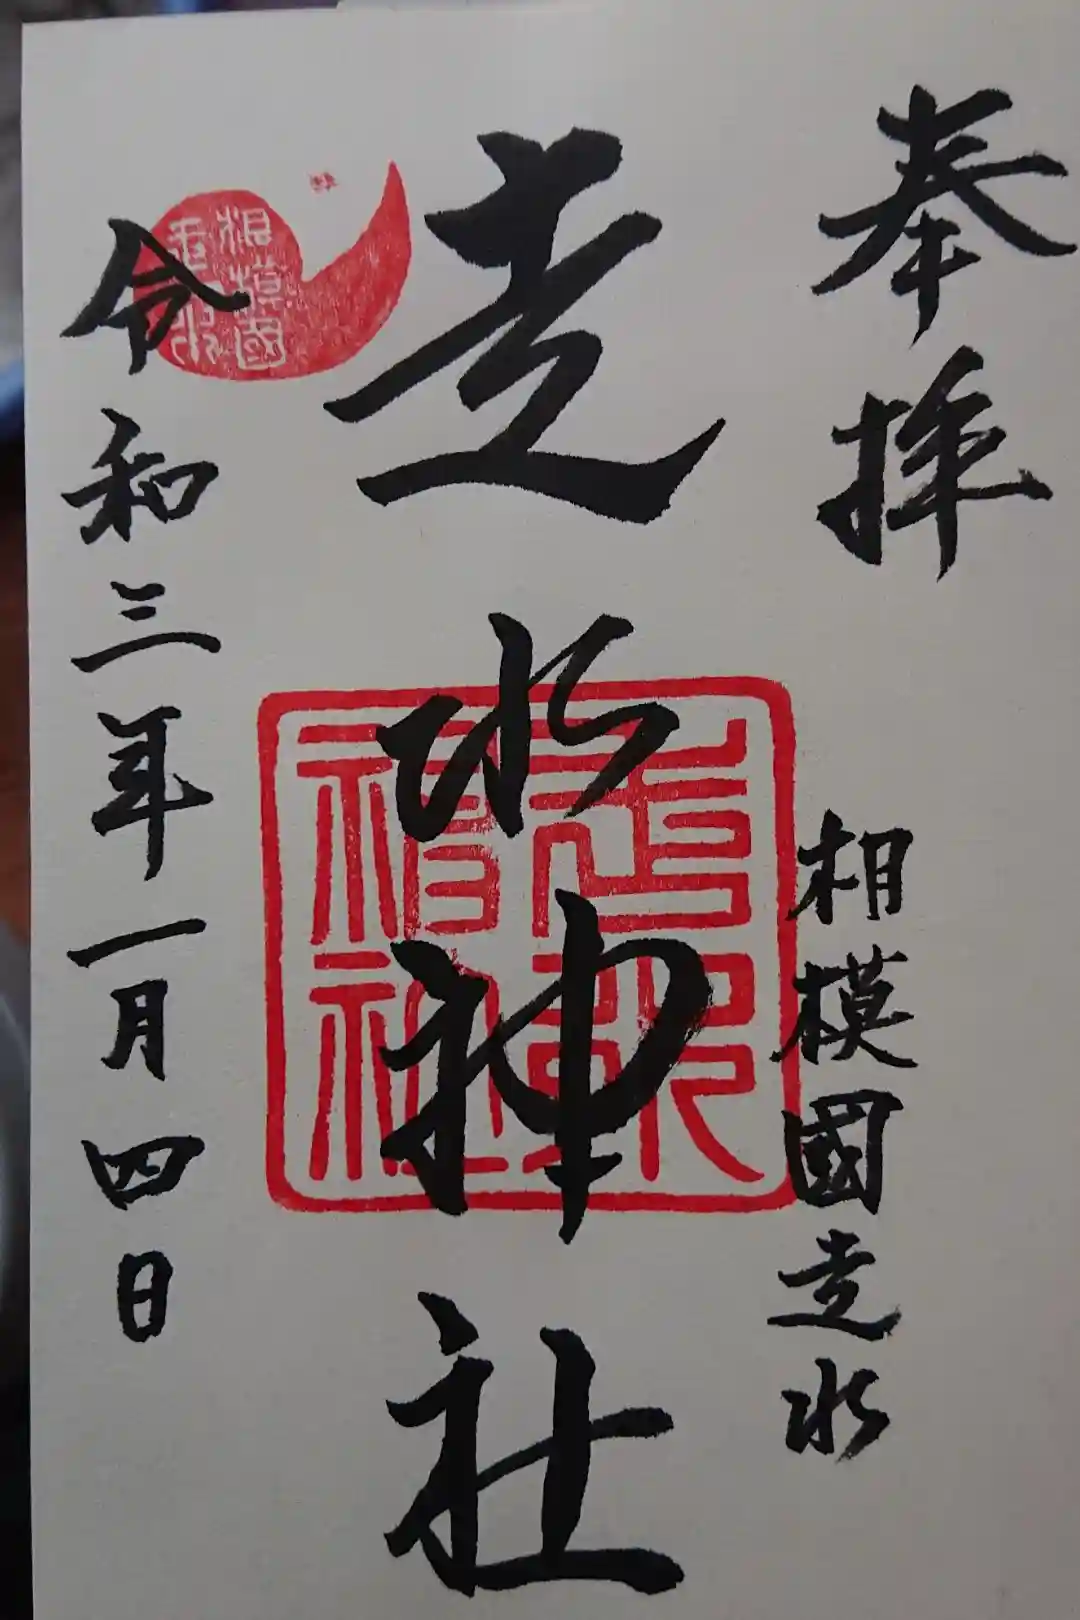 奉拝
相模國走水
走水神社
走水神社
相模國
走水
令和三年一月四日